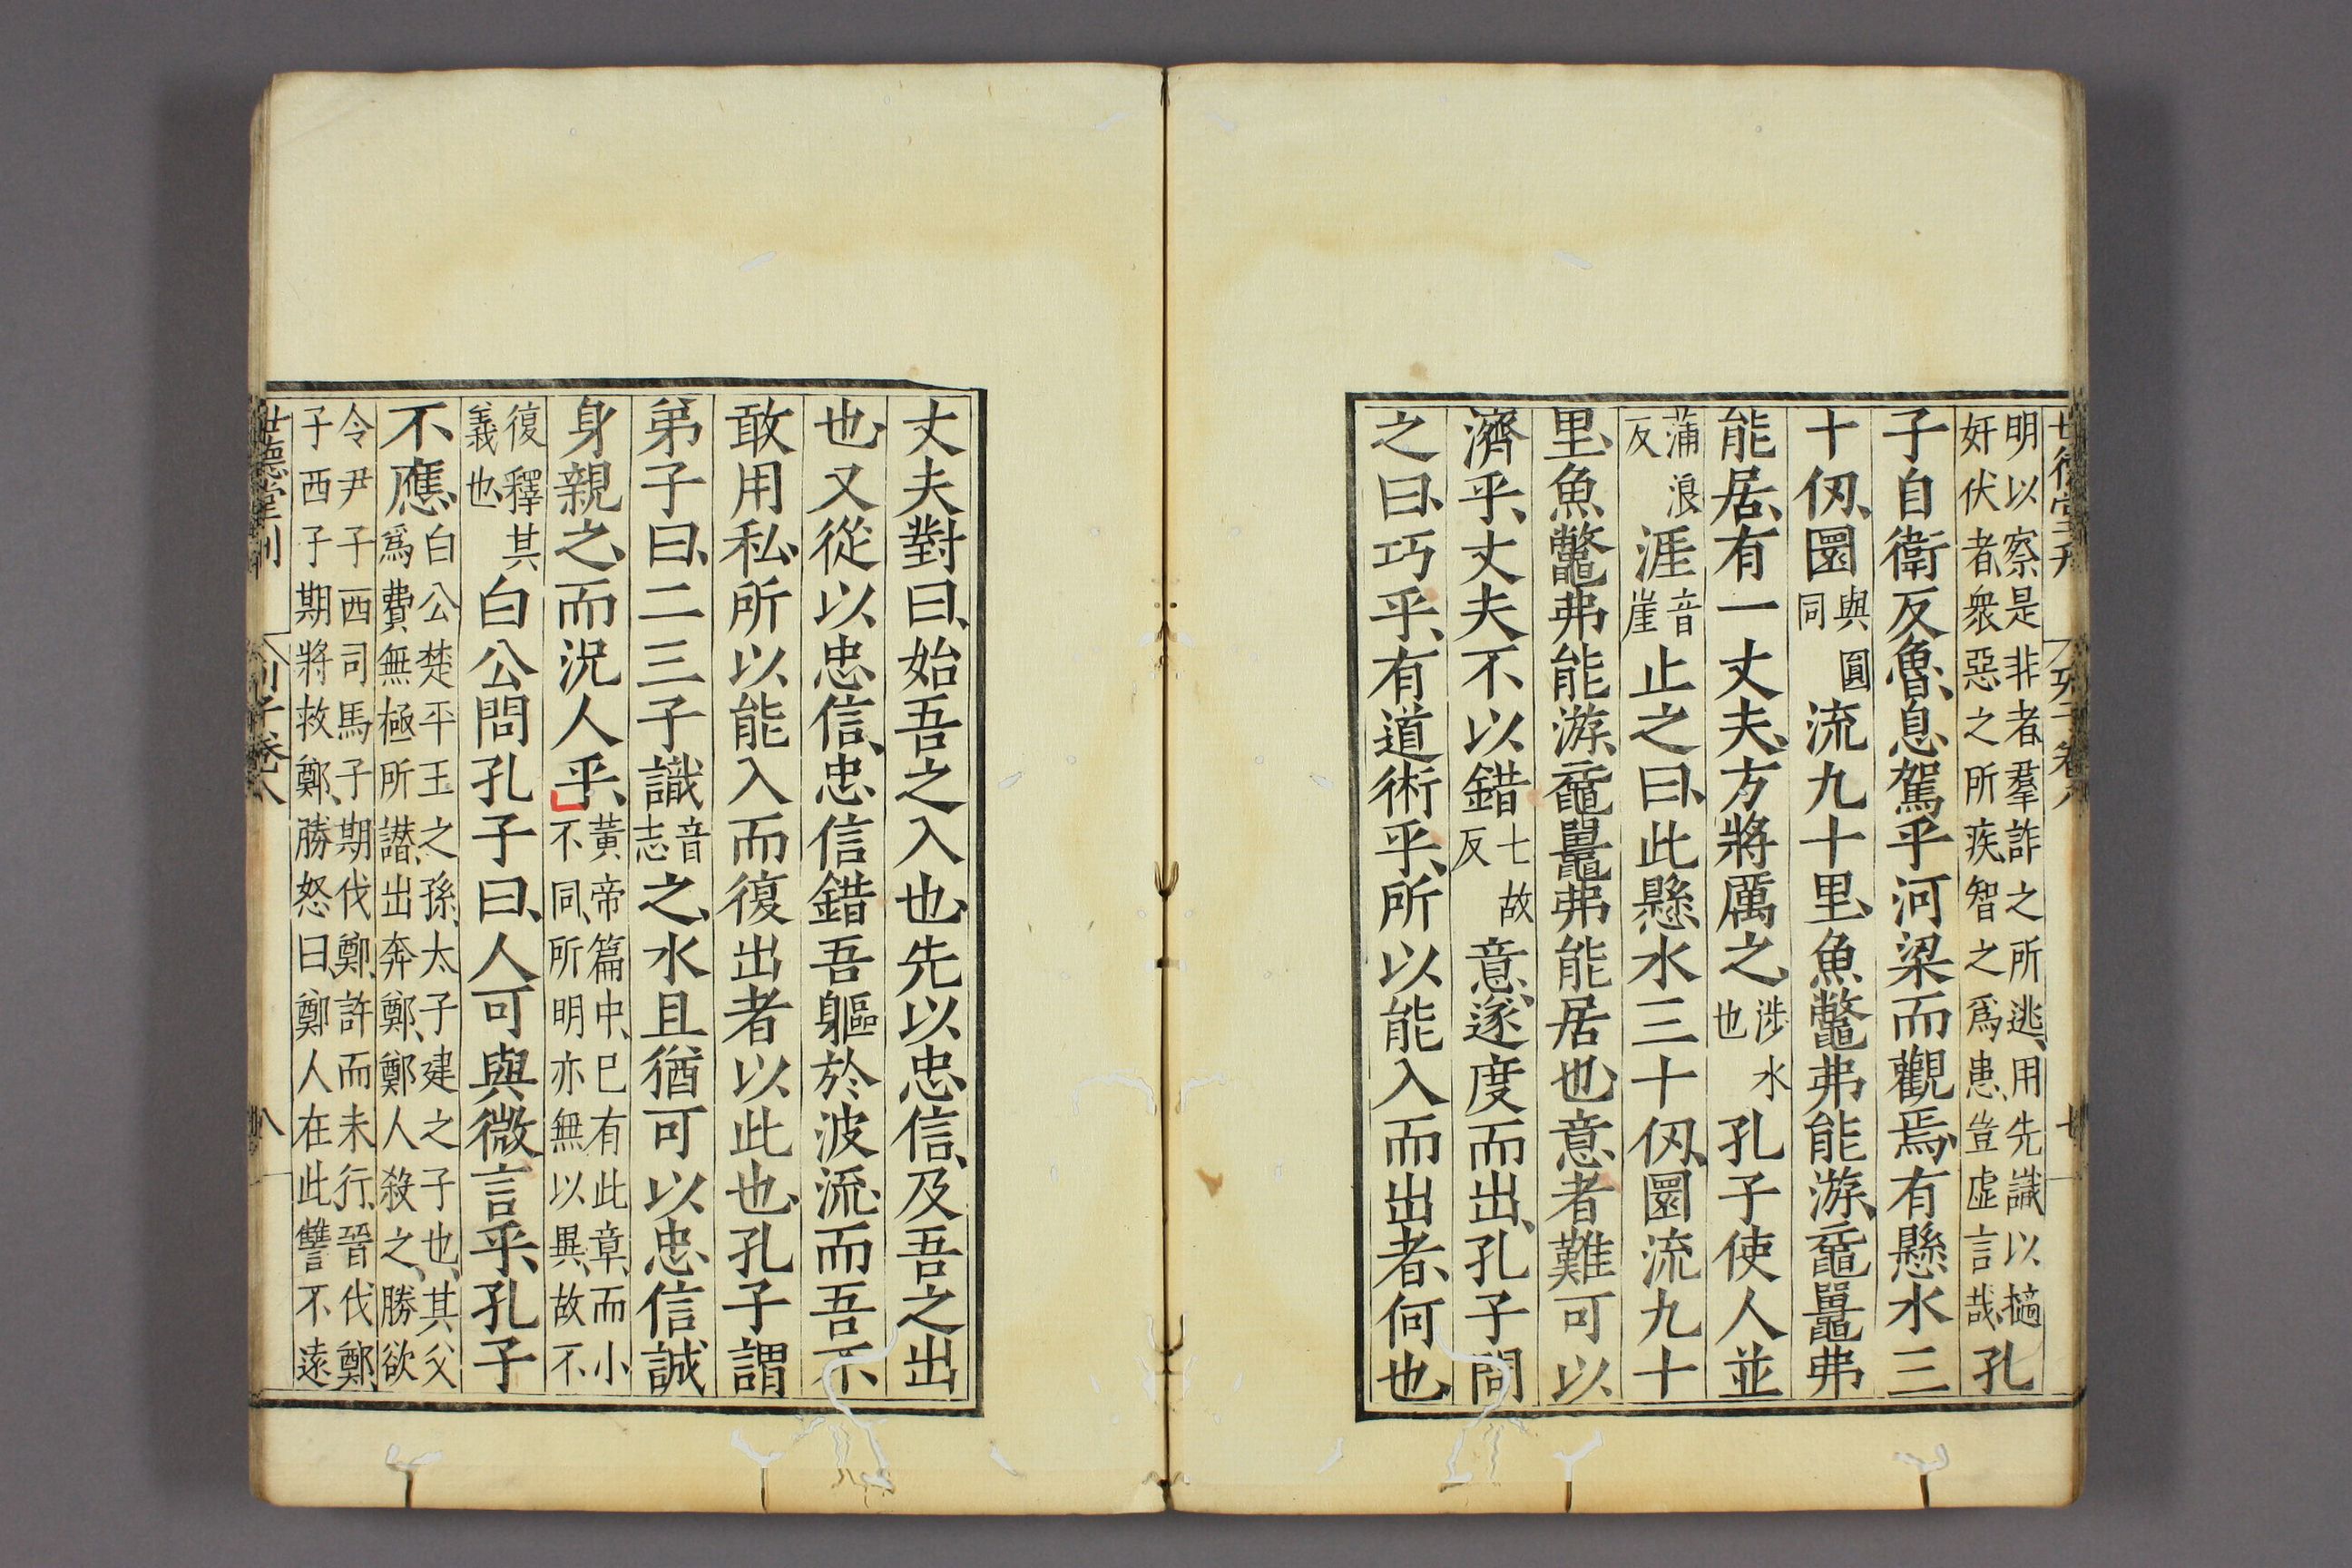 世德堂刊 列子卷八 七
明以察是非者、羣詐之所逃、用先識以擿
奸伏者、衆惡之所疾、智之爲患、豈虛言哉、孔
子自衛反魯、息駕乎河梁而觀焉、有懸水三
十仞、圜與圓同流九十里、魚鼈弗能游、黿鼉弗
能居、有一丈夫、方將厲之、涉水也孔子使人並
蒲浪反涯音崖止之曰、此懸水三十仞、圜流九十
里、魚鼈弗能游、黿鼉弗能居也、意者難可以
濟乎、丈夫不以錯七故反意、遂度而出、孔子問
之曰、巧乎、有道術乎、所以能入而出者、何也、
丈夫對曰、始吾之入也、先以忠信、及吾之出
也、又從以忠信、忠信錯吾軀於波流、而吾不
敢用私、所以能入而復出者、以此也、孔子謂
弟子曰、二三子識音志之、水且猶可以忠信誠
身親之、而況人乎、黃帝篇中、已有此章、而小不同、所明亦無以異、故不
復釋其義也、白公問孔子曰、人可與微言乎、孔子
不應、白公楚平王之孫、太子建之子也、其父爲費無極所譖、出奔鄭、鄭人殺之、勝欲
令尹子西司馬子期伐鄭、許而未行、晉伐鄭
子西子期將救鄭、勝怒曰、鄭人在此讐不遠
世德堂刊 列子卷八 八